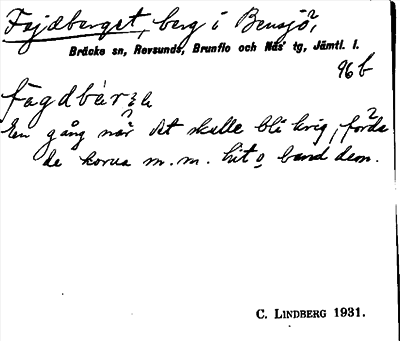 Fejdberget, berg i Bensjö,
Bräcke sn, Revsunds, Brunflo och Näs' tg, Jämtl. l.
96 b
En gång när det skulle bli krig, förde
de korna m.m. hit o band dem.
C. LINDBERG 1931.